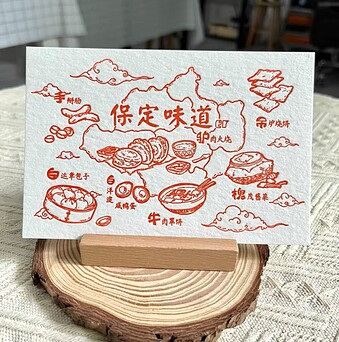 保定味道
手掰肠
驴肉火烧
吊炉烧饼
白运章包子
白洋淀
咸鸭蛋
牛肉罩饼
槐茂酱菜